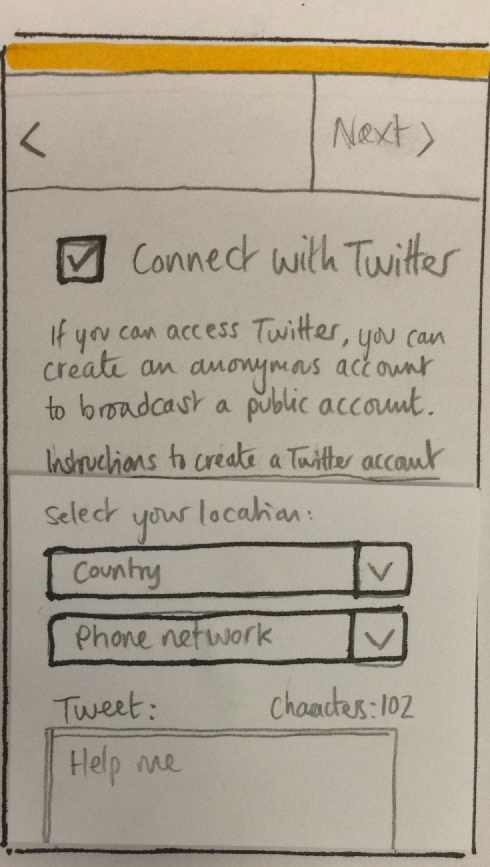 < Next >
Connect with Twitter
If you can access Twitter, you can
create an anonymous account
to broadcast a public account.
Instructions to create a Twitter account
Select your location:
Country
Phone network
Tweet: Characters: 102
Help me